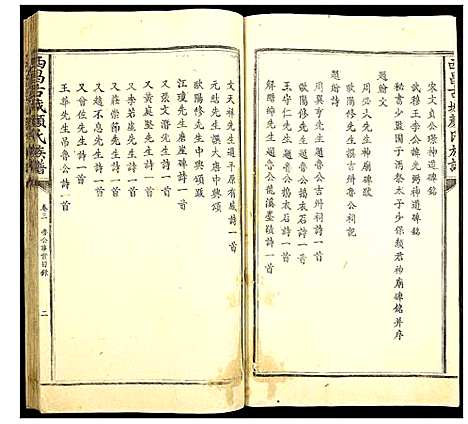 宋文貞公璟神道碑銘
武難王李公諱光弼神道碑銘
秘書少監國子酒祭太子少保顏君神廟碑銘并序
題翰文
周必大先生神廟碑跋
歐陽修先生題魯公祠記
題翰詩
周巽亨先生題魯公吉州祠詩一首
歐陽修先生題魯公搗衣石詩一首
王守仁先生題魯公搗衣石詩一首
解縉紳先生題魯公龍溪墨蹟詩一首
文天祥先生過平原有感詩一首
元結先生撰大唐中興頌
歐陽修先生中興頌跋
江瓊先生磨崖碑詩一首
又張文潛先生詩一首
又黃庭堅先生詩一首
又李若虛先生詩一首
又莊崇節先生詩一首
又趙不息先生詩一首
王華先生吊魯公詩一首
西昌古城顏氏族譜
卷三
魯公事實目錄
二
西昌古城顏氏族譜